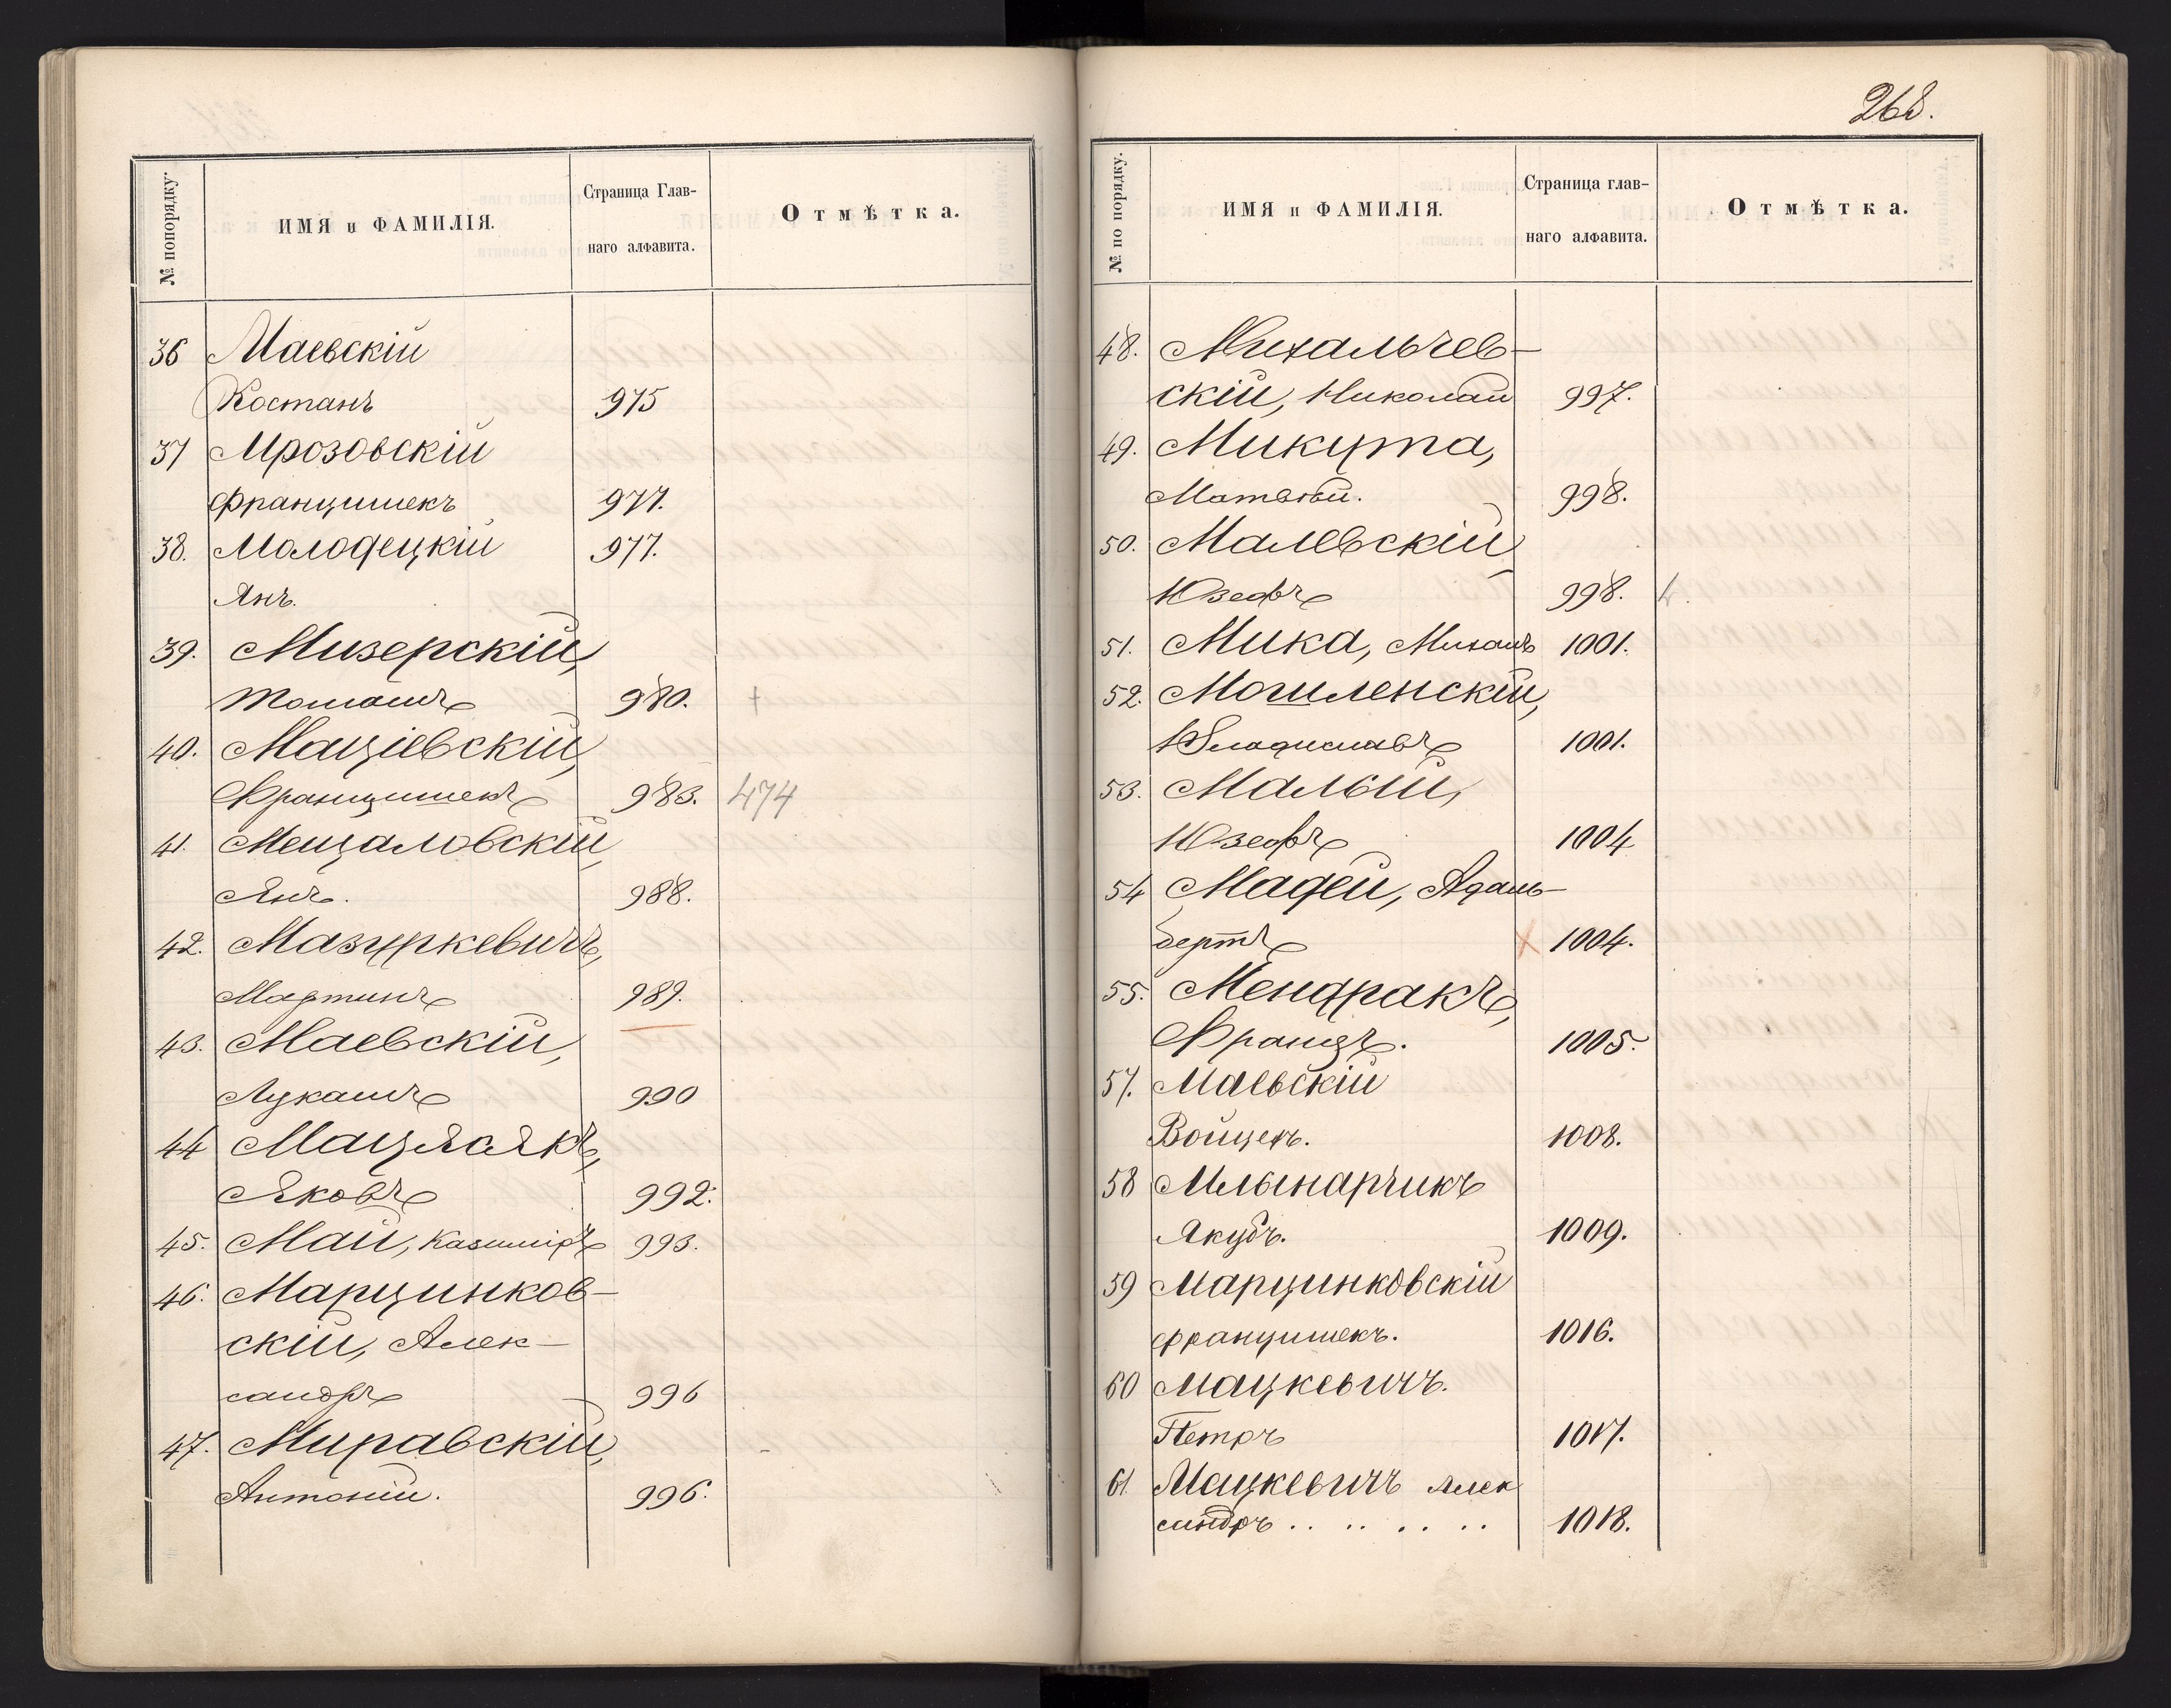 268.
№ попорядку.
ИМЯ и ФАМИЛІЯ.
Страница Глав-
наго алфавита.
Отмѣтка.
36 Маевскій
Костанъ 975
37 Мрозовскій
Францишекъ 977.
38. Молодецкій 977.
Янъ.
39. Мизерскій,
Томашъ 980. +
40. Маціевскій,
Францишекъ 983. 474
41. Мещаловскій,
Янъ. 988.
42. Мазуркевичъ,
Мартинъ 989.
43. Маевскій,
Лукашъ 990
44 Мацлаякъ,
Яковъ 992.
45. Май, Казиміръ 993.
46. Марцинков-
скій, Алек-
сандръ 996
47. Миравскій,
Антоній. 996.
№ по порядку.
ИМЯ и ФАМИЛІЯ.
Страница глав-
наго алфавита.
Отмѣтка.
48. Михальчев-
скій, Николай 997.
49. Микута,
Матвѣй. 998.
50. Малевскій,
Юзефъ 998.
51. Мика, Михаилъ 1001.
52. Могиленскій,
Владиславъ 1001.
53. Малый,
Юзефъ 1004
54 Мадей, Адаль-
бертъ х 1004.
55. Мендракъ,
Францъ. 1005.
57. Маевскій
Войцехъ. 1008.
58 Млынарчикъ
Якубъ. 1009.
59 Марцинковскій
Францишекъ. 1016.
60 Мацкевичъ.
Петръ 1017.
61. Мацкевичъ Алек
сандръ .. .. .. .. 1018.